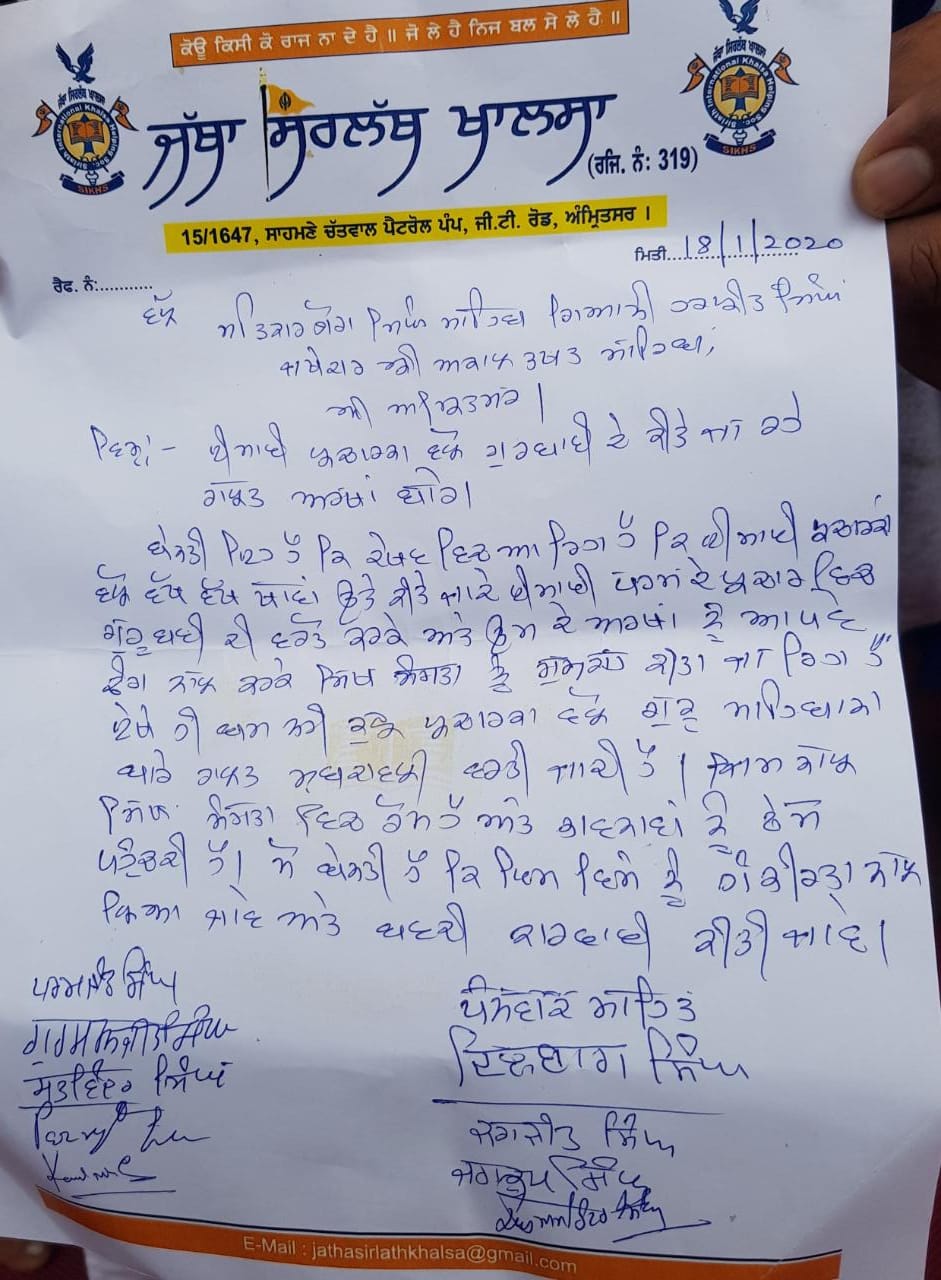 ਕੋਊ ਕਿਸੀ ਕੋ ਰਾਜ ਨਾ ਦੇ ਹੈ ॥ ਜੋ ਲੇ ਹੈ ਨਿਜ ਬਲ ਸੇ ਲੇ ਹੈ ॥
ਜੱਥਾ ਸਿਰਲੱਥ ਖਾਲਸਾ
(ਰਜਿ. ਨੰ: 319)
SIKHS
SIKHS
15/1647, ਸਾਹਮਣੇ ਚੱਤਵਾਲ ਪੈਟਰੋਲ ਪੰਪ, ਜੀ.ਟੀ. ਰੋਡ, ਅੰਮ੍ਰਿਤਸਰ ।
ਮਿਤੀ....18/1/2020
ਰੈਫ. ਨੰ:............
ਵੱਲ ਸਤਿਕਾਰਯੋਗ ਸਿੰਘ ਸਾਹਿਬ ਗਿਆਨੀ ਹਰਪ੍ਰੀਤ ਸਿੰਘ
ਜਥੇਦਾਰ ਸ੍ਰੀ ਅਕਾਲ ਤਖਤ ਸਾਹਿਬ,
ਸ੍ਰੀ ਅੰਮ੍ਰਿਤਸਰ।
ਵਿਸ਼ਾ:- ਈਸਾਈ ਪ੍ਰਚਾਰਕਾਂ ਵਲੋਂ ਗੁਰਬਾਣੀ ਦੇ ਕੀਤੇ ਜਾ ਰਹੇ
ਗਲਤ ਅਰਥਾਂ ਬਾਰੇ।
ਬੇਨਤੀ ਇਹ ਹੈ ਕਿ ਦੇਖਣ ਵਿਚ ਆ ਰਿਹਾ ਹੈ ਕਿ ਈਸਾਈ ਪ੍ਰਚਾਰਕਾਂ
ਵਲੋਂ ਵੱਖ ਵੱਖ ਥਾਵਾਂ ਉਤੇ ਕੀਤੇ ਜਾਂਦੇ ਈਸਾਈ ਧਰਮ ਦੇ ਪ੍ਰਚਾਰ ਵਿਚ
ਗੁਰੂਬਾਣੀ ਦੀ ਵਰਤੋਂ ਕਰਕੇ ਅਤੇ ਉਸ ਦੇ ਅਰਥਾਂ ਨੂੰ ਆਪਣੇ
ਢੰਗ ਨਾਲ ਕਰਕੇ ਸਿੱਖ ਸੰਗਤਾਂ ਨੂੰ ਗੁੰਮਰਾਹ ਕੀਤਾ ਜਾ ਰਿਹਾ ਹੈ
ਇਥੇ ਹੀ ਬਸ ਨਹੀਂ ਕੁਝ ਪ੍ਰਚਾਰਕਾਂ ਵਲੋਂ ਗੁਰੂ ਸਾਹਿਬਾਨਾਂ
ਬਾਰੇ ਗਲਤ ਸ਼ਬਦਾਵਲੀ ਵਰਤੀ ਜਾਂਦੀ ਹੈ। ਜਿਸ ਨਾਲ
ਸਿੱਖ ਸੰਗਤਾਂ ਵਿਚ ਰੋਸ ਹੈ ਅਤੇ ਭਾਵਨਾਵਾਂ ਨੂੰ ਠੇਸ
ਪਹੁੰਚਦੀ ਹੈ। ਸੋ ਬੇਨਤੀ ਹੈ ਕਿ ਇਸ ਵਿਸ਼ੇ ਨੂੰ ਗੰਭੀਰਤਾ ਨਾਲ
ਲਿਆ ਜਾਵੇ ਅਤੇ ਬਣਦੀ ਕਾਰਵਾਈ ਕੀਤੀ ਜਾਵੇ।
ਪਰਮਜੀਤ ਸਿੰਘ
ਧੰਨਵਾਦ ਸਹਿਤ
ਦਿਲਬਾਗ ਸਿੰਘ
ਸੁਤਵਿੰਦਰ ਸਿੰਘ
ਜਗਜੀਤ ਸਿੰਘ
ਜਗਰੂਪ ਸਿੰਘ
E-Mail : jathasirlathkhalsa@gmail.com